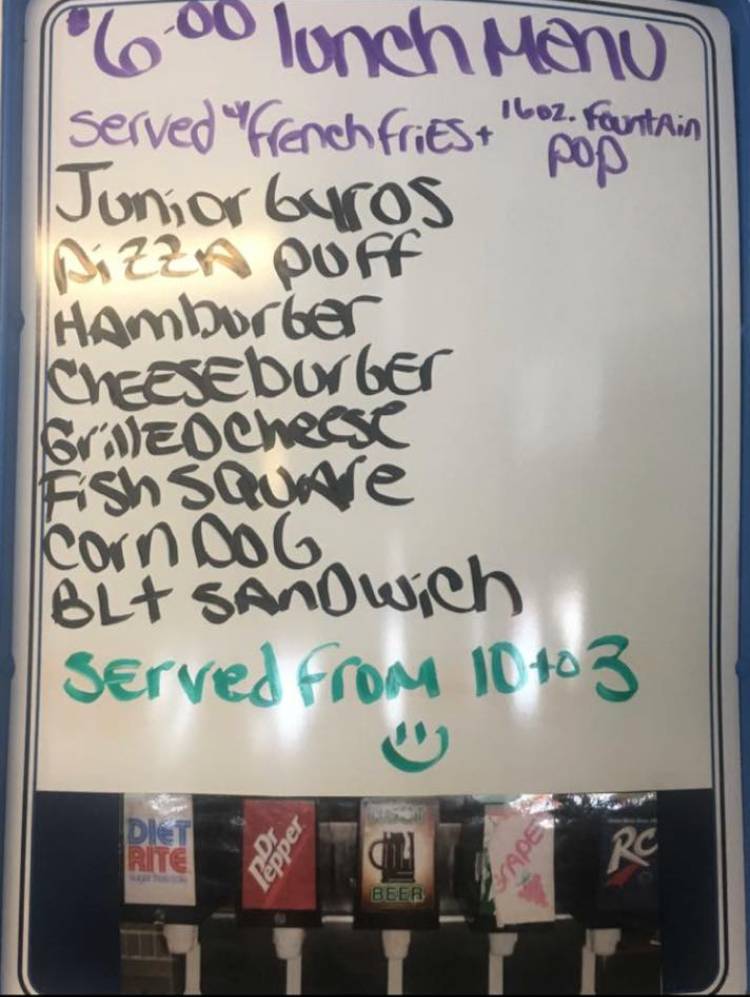 $6.00 lunch Menu
Served w/ french fries + 16oz. fountain
pop
Junior Gyros
Pizza Puff
Hamburger
Cheeseburger
Grilled Cheese
Fish Square
Corn Dog
BLT Sandwich
Served from 10 to 3
DIET
RITE
Dr
Pepper
BEER
GRAPE
RC